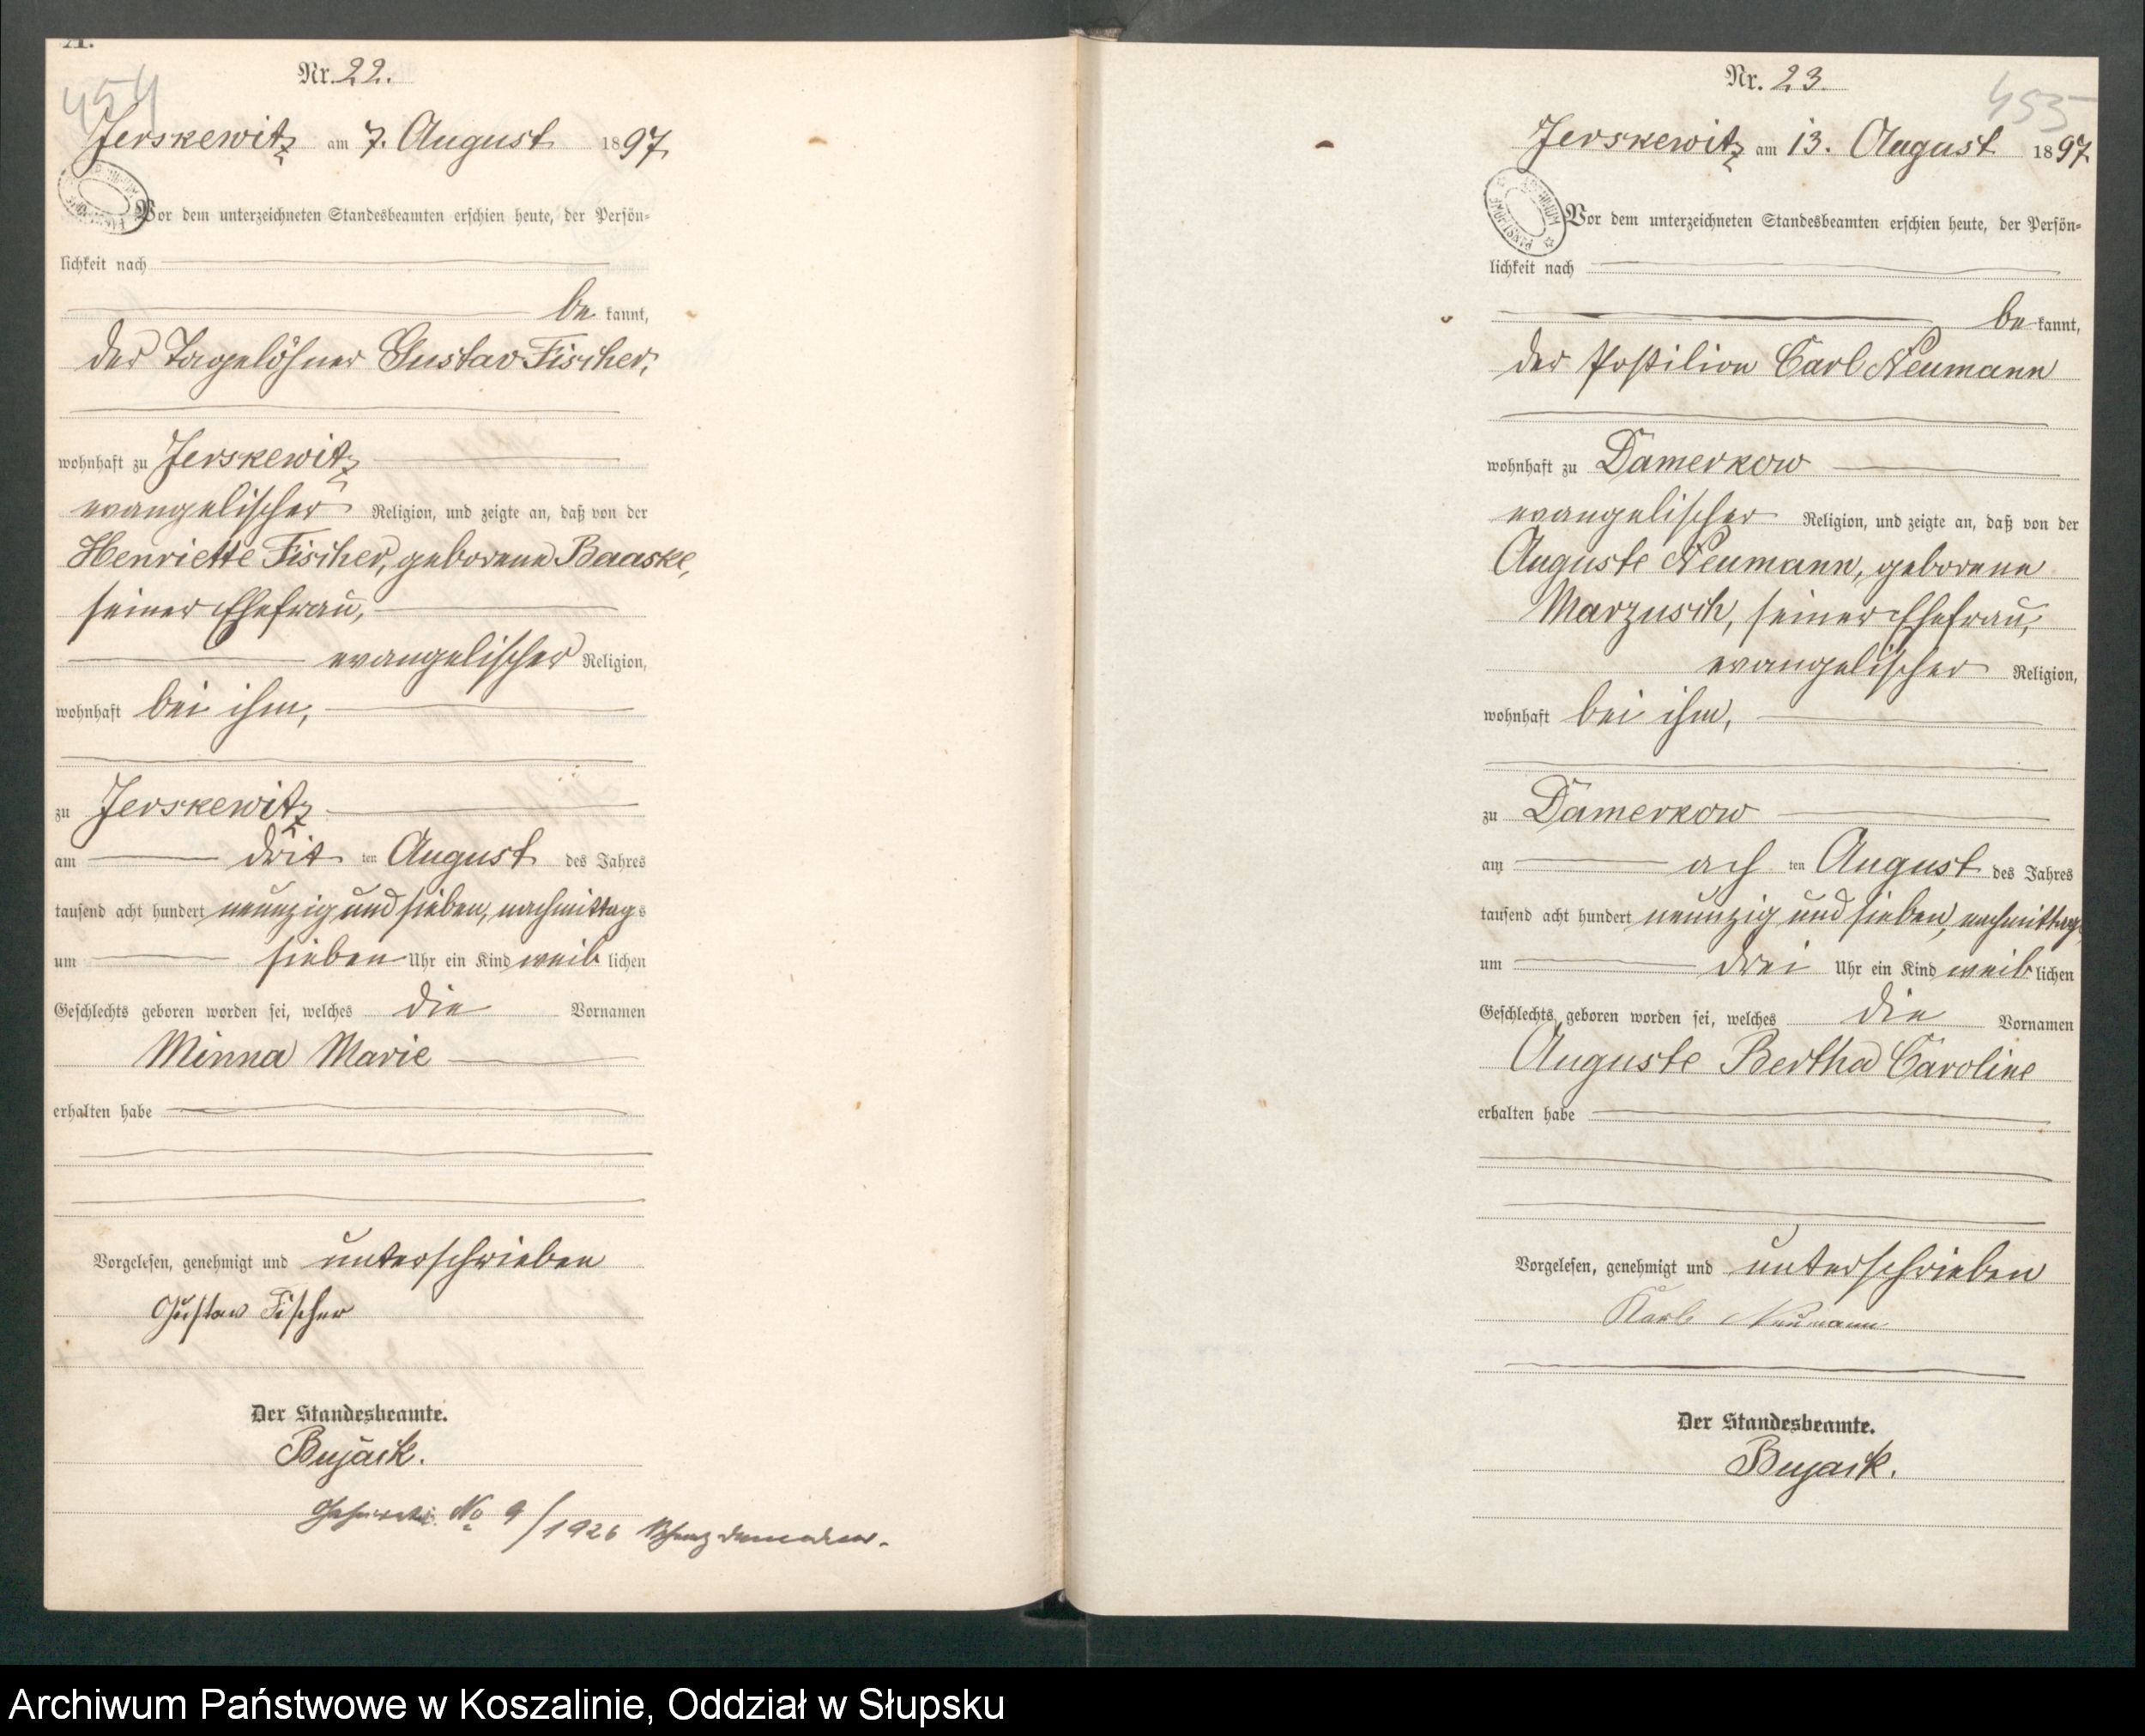 A.
454
Nr. 22.
Jerskewitz am 7. August 1897
Vor dem unterzeichneten Standesbeamten erschien heute, der Persön-
lichkeit nach
be kannt,
der Tagelöhner Gustav Fischer,
wohnhaft zu Jerskewitz
evangelischer Religion, und zeigte an, daß von der
Henriette Fischer, geborene Baaske,
seiner Ehefrau,
evangelischer Religion,
wohnhaft bei ihm,
zu Jerskewitz
am drit ten August des Jahres
tausend acht hundert neunzig und sieben, nachmittags
um sieben Uhr ein Kind weib lichen
Geschlechts geboren worden sei, welches die Vornamen
Minna Marie
erhalten habe
Vorgelesen, genehmigt und unterschrieben
Gustav Fischer
Der Standesbeamte.
Bujack.
No 9/1926
455
Nr. 23.
Jerskewitz am 13. August 1897
Vor dem unterzeichneten Standesbeamten erschien heute, der Persön-
lichkeit nach
be kannt,
der Postilion Carl Neumann
wohnhaft zu Damerkow
evangelischer Religion, und zeigte an, daß von der
Auguste Neumann, geborene
Marzusch, seiner Ehefrau,
evangelischer Religion,
wohnhaft bei ihm,
zu Damerkow
am ach ten August des Jahres
tausend acht hundert neunzig und sieben, nachmittags
um drei Uhr ein Kind weib lichen
Geschlechts geboren worden sei, welches die Vornamen
Auguste Bertha Caroline
erhalten habe
Vorgelesen, genehmigt und unterschrieben
Karl Neumann
Der Standesbeamte.
Bujack.
Archiwum Państwowe w Koszalinie, Oddział w Słupsku